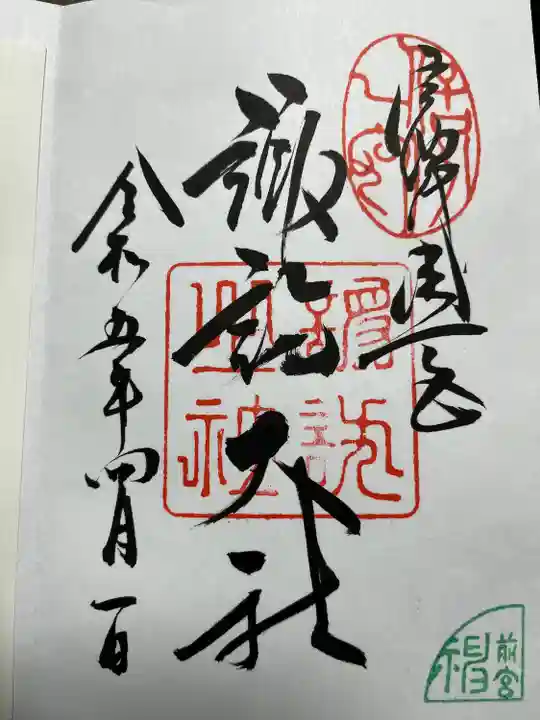 信濃國一之宮
諏訪大社
令和五年四月一日
諏訪
之社
前宮